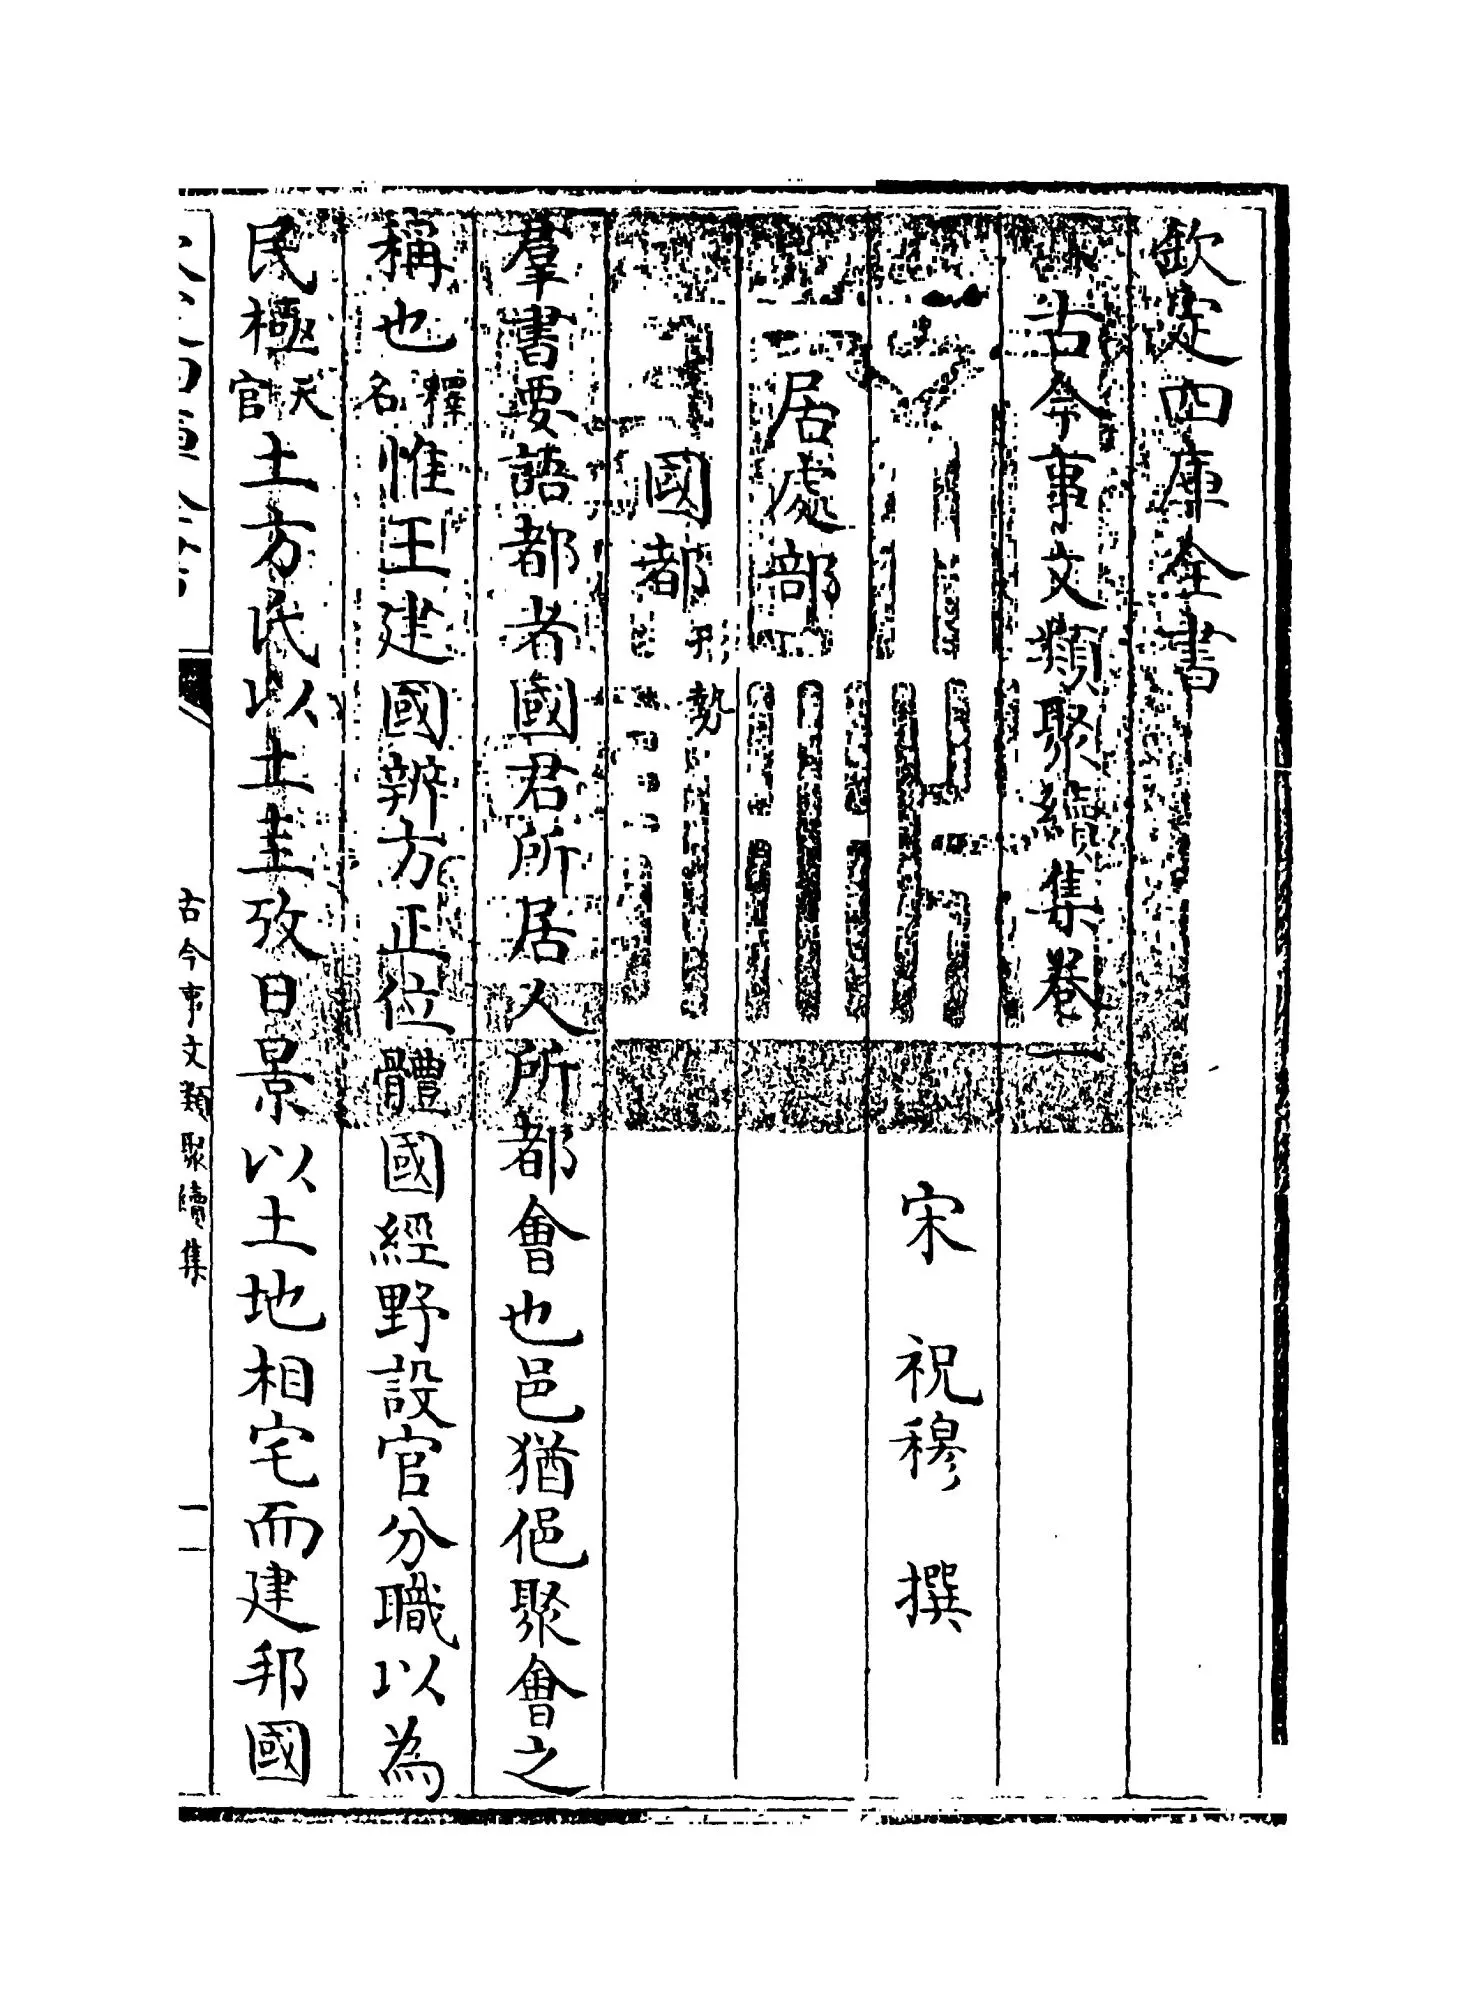 欽定四庫全書
古今事文類聚續集卷一
宋 祝穆 撰
居處部
國都 形勢
羣書要語都者國君所居人所都會也邑猶俋聚會之
稱也釋名惟王建國辨方正位體國經野設官分職以為
民極天官土方氏以土圭攷日景以土地相宅而建邦國
古今事文類聚續集
一